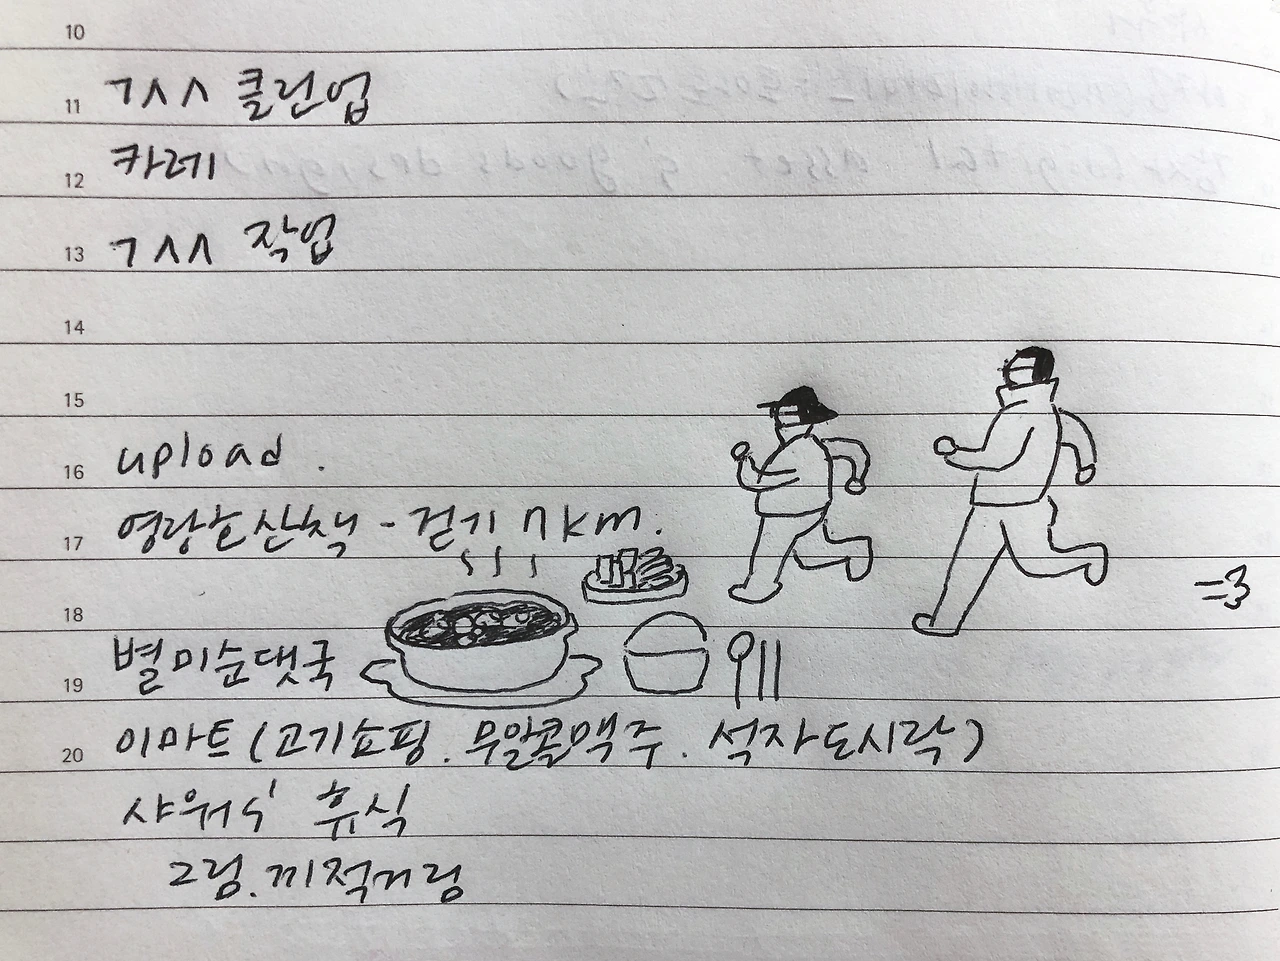 10
11 ㄱㅅㅅ 클린업
12 카레
13 ㄱㅅㅅ 작업
14
15
16 upload.
17 영랑호산책 - 걷기 7km.
18
19 별미순댓국
=3
20 이마트(고기쇼핑. 무알콜맥주. 석자도시락)
샤워 & 휴식
그림.끼적거림